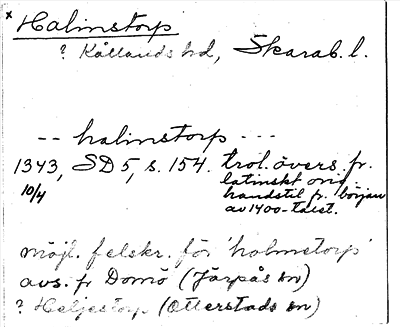 x Halmstorp
? Kållands hd, Skarab. l.
-- halmstorp ---
1343, SD 5, s. 154. trol. övers. fr.
10/4 latinskt orig.
handstil fr. början
av 1400-talet.
möjl. felskr. för 'holmstorp'
avs. fr Domö (Järpås sn)
? Heljestorp (Otterstads sn)